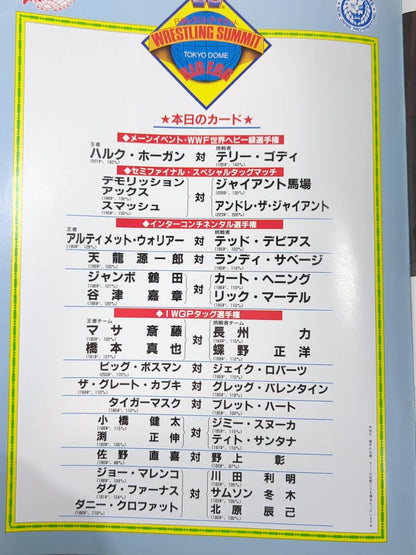 WRESTLING SUMMIT
TOKYO DOME
★本日のカード★
◆メーンイベント・WWF世界ヘビー級選手権
王者 挑戦者
ハルク・ホーガン 対 テリー・ゴディ
◆セミファイナル・スペシャルタッグマッチ
デモリッション
アックス
スマッシュ
対
ジャイアント馬場
アンドレ・ザ・ジャイアント
◆インターコンチネンタル選手権
王者 挑戦者
アルティメット・ウォリアー 対 テッド・デビアス
天龍源一郎 対 ランディ・サベージ
ジャンボ鶴田
谷津嘉章
対
カート・ヘニング
リック・マーテル
◆IWGPタッグ選手権
王者チーム 挑戦者チーム
マサ斎藤
橋本真也
対
長州力
蝶野正洋
ビッグ・ボスマン 対 ジェイク・ロバーツ
ザ・グレート・カブキ 対 グレッグ・バレンタイン
タイガーマスク 対 ブレット・ハート
小橋健太
渕正伸
対
ジミー・スヌーカ
ティト・サンタナ
佐野直喜 対 野上彰
ジョー・マレンコ
ダグ・ファーナス
ダニー・クロファット
対
川田利明
サムソン冬木
北原辰己